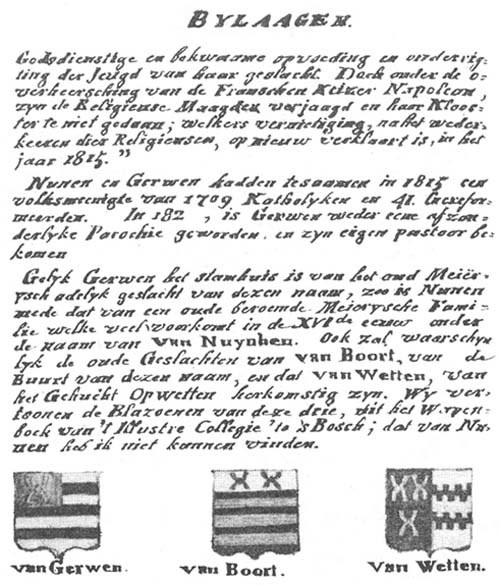 BYLAAGEN.
Godsdienstige en bekwaame opvoeding en onderrig-
ting der Jeugd van haar geslacht. Doch onder de o-
verheersching van de Franschen Keizer Napoleon,
zyn de Religieuse Maagden verjaagd en haar Kloos-
ter te niet gedaan; welkers vernietiging, na het weder-
keeren dier Religieusen, op nieuw verklaart is, in het
jaar 1815."
Nunen en Gerwen hadden tesaamen in 1815 een
volksmeenigte van 1709 Katholyken en 41. Gerefor-
meerden. In 182 , is Gerwen weder eene afzon-
derlyke Parochie geworden. en zyn eigen pastoor be-
komen
Gelyk Gerwen het stamhuis is van het oud Meiër-
ysch adelyk geslacht van dezen naam, zoo is Nunen
mede dat van een oude beroemde Meiorysche Fami-
lie welke veel voorkomt in de XVIde eeuw onder
de naam van van Nuynhen. Ook zal waarschyn
lyk de oude Geslachten van van Boort, van de
Buurt van dezen naam, en dat van Wetten, van
het Gehucht Opwetten herkomstig zyn. Wy ver-
toonen de Blazoenen van deze drie, uit het Wapen-
boek van 't Illustre Collegie te 's Bosch; dat van Nu-
nen heb ik niet konnen vinden.
van Gerwen.
van Boort.
van Wetten.